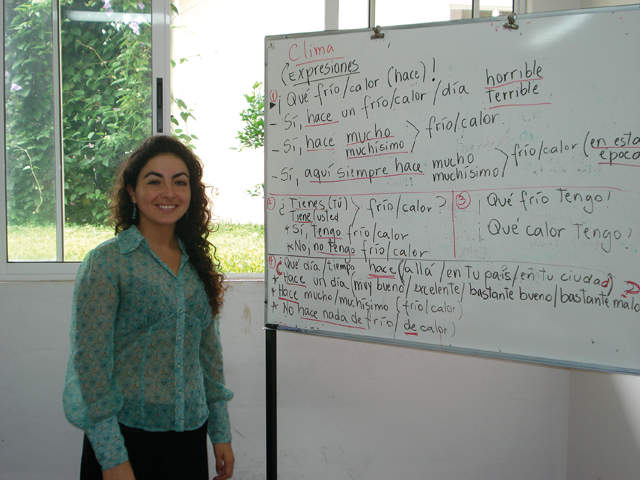 Clima
(Expresiones
① ¡Qué frío/calor (hace)!
- Sí, hace un frío/calor/día horrible terrible
- Sí, hace mucho muchísimo > frío/calor.
- Sí, aquí siempre hace mucho muchísimo > frío/calor (en esta epoca
② ¿Tienes (tú)
¿Tiene (usted > frío/calor?
* Sí, Tengo frío/calor
* No, no tengo frío/calor
③ ¡Qué frío Tengo!
¡Qué calor Tengo!
¿Qué día/tiempo hace (allá/en tu país/en tu ciudad)?
* Hace un día muy bueno/excelente/bastante bueno/bastante malo
* Hace mucho/muchísimo (frío/calor)
* No hace nada de frío/de calor)